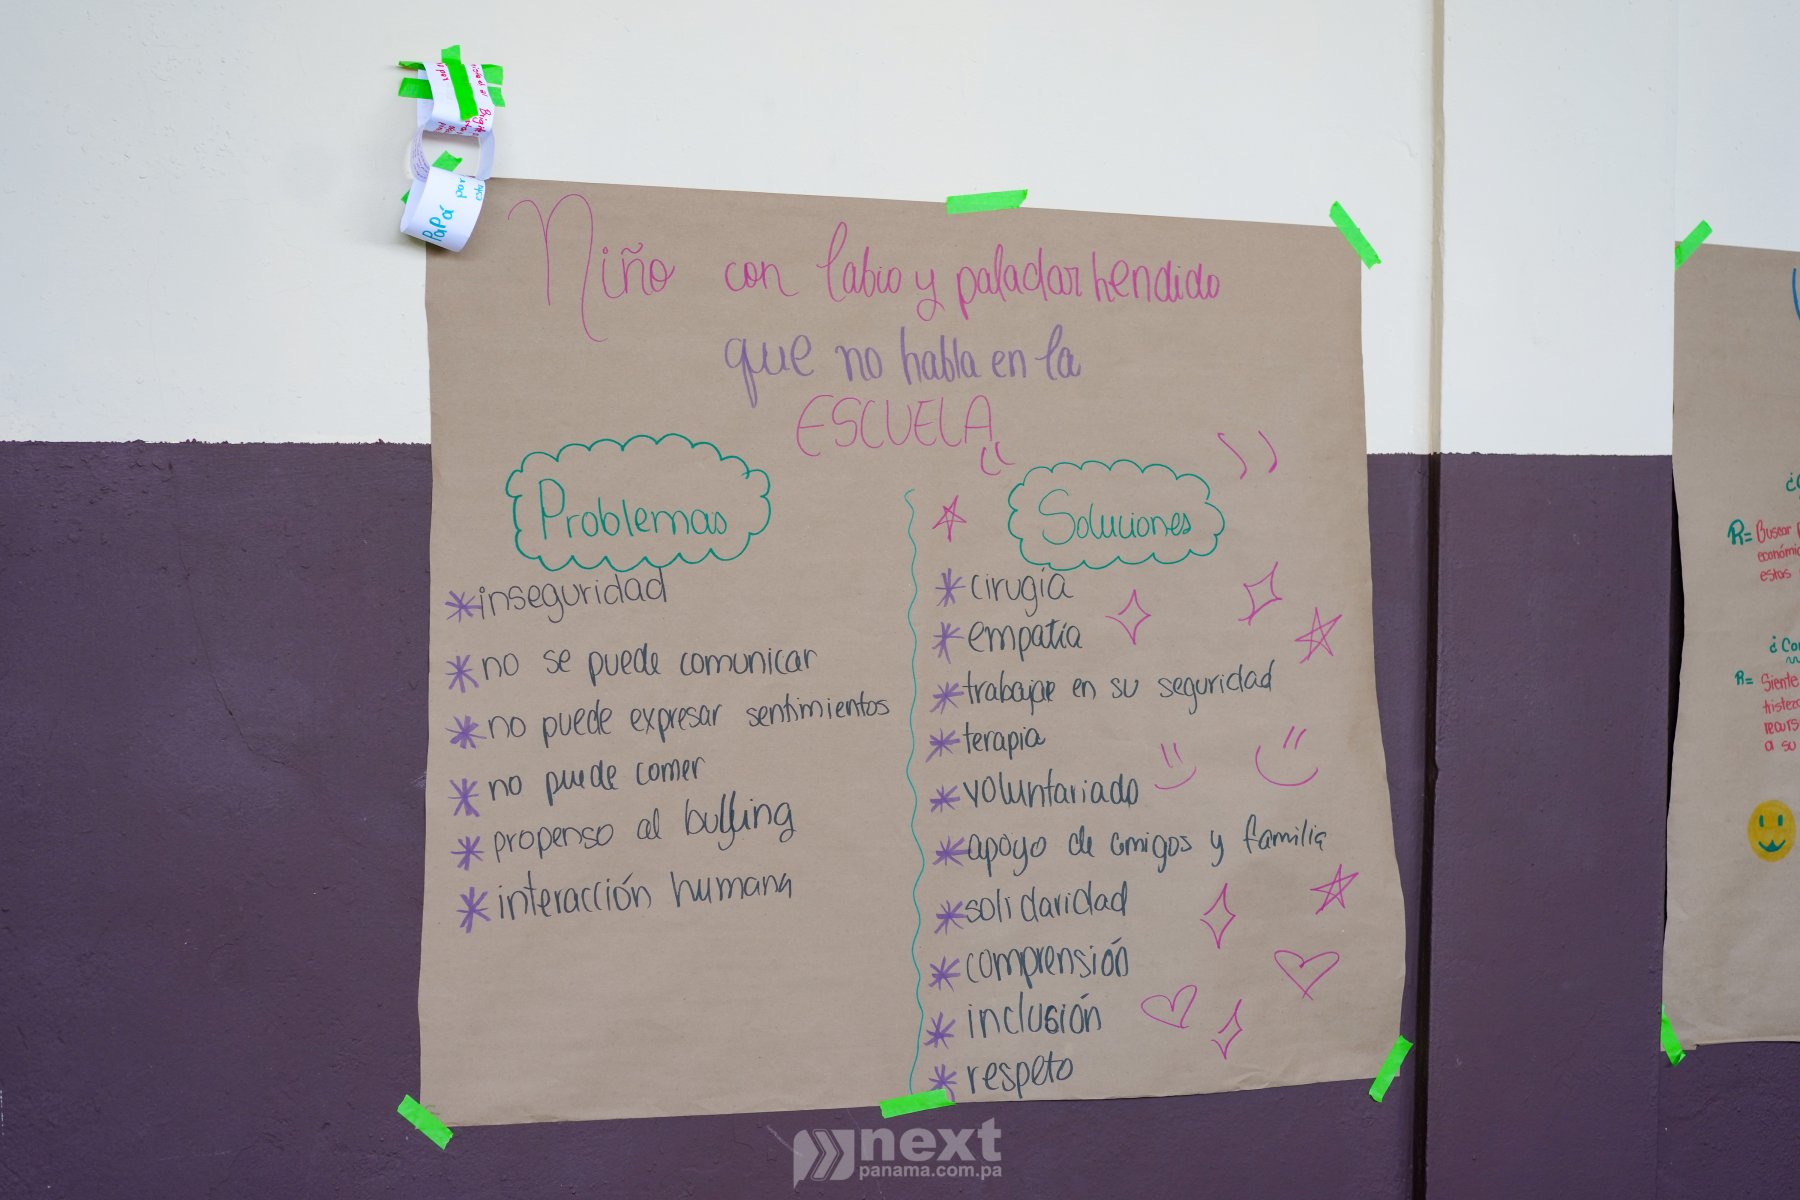 Papá por
esta
Niño con labio y paladar hendido
que no habla en la
ESCUELA
Problemas
inseguridad
no se puede comunicar
no puede expresar sentimientos
no puede comer
propenso al bullying
interacción humana
Soluciones
cirugía
empatía
trabajar en su seguridad
terapia
voluntariado
apoyo de amigos y familia
solidaridad
comprensión
inclusión
respeto
R= Buscar
económic
estas
¿Co
R= Siente
tristeza
recurs
a su
next
panama.com.pa